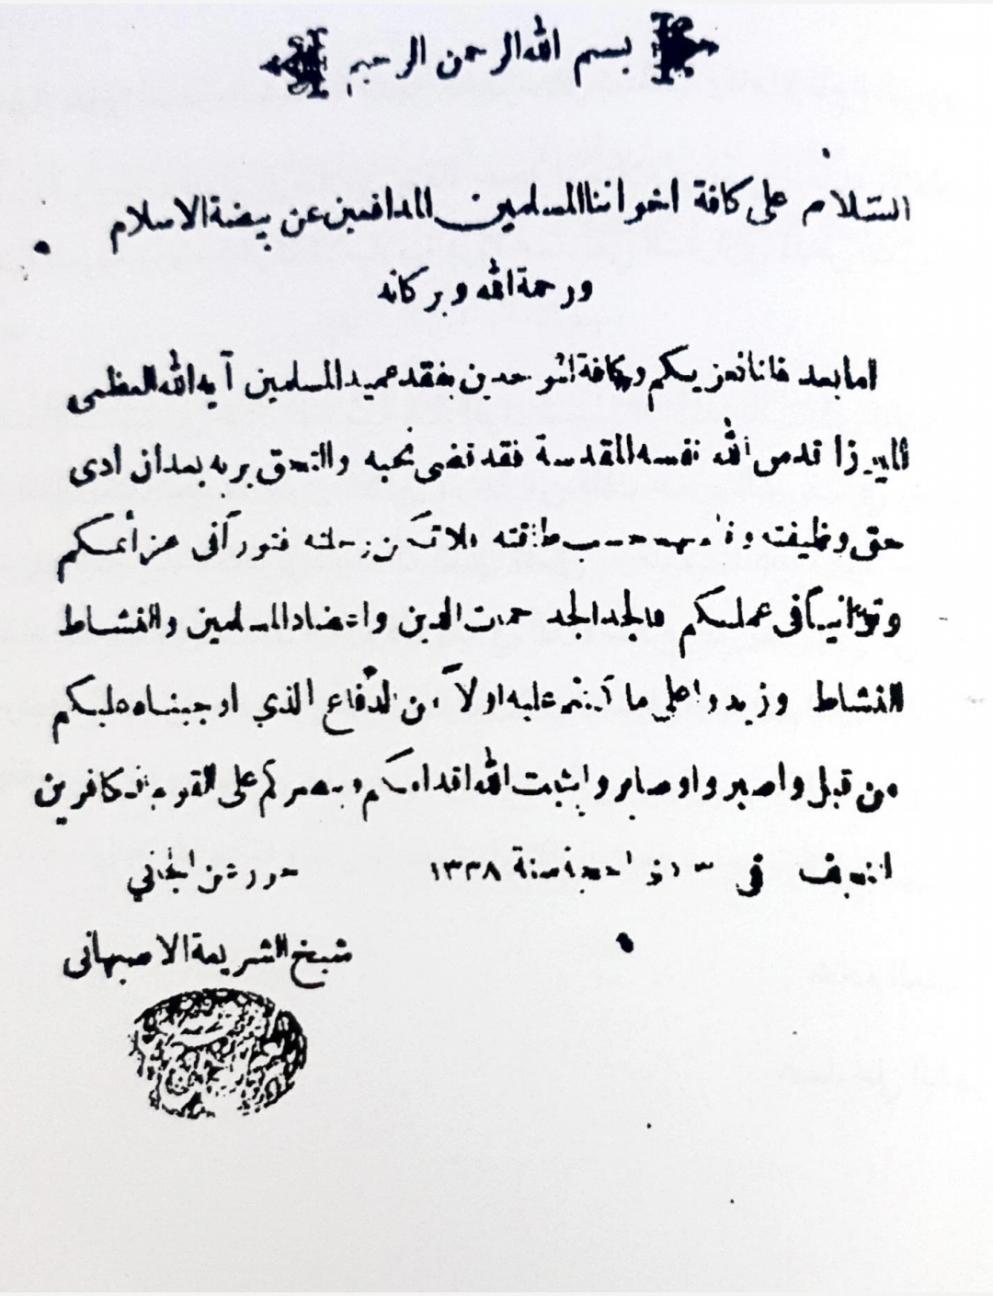 بسم الله الرحمن الرحيم
السلام على كافة اخواننا المسلمين المدافعين عن بيضة الاسلام
ورحمة الله وبركاته
اما بعد فانا نعزيكم وكافة الموحدين بفقد عميد المسلمين آية الله العظمى
الميرزا قدس الله نفسه المقدسة فقد قضى نحبه والتحق بربه بعد ان ادى
حق وظيفته حسب طاقته فلا تكن رحلته فتوراً في عزائمكم
وتوانياً في عملكم فالجد الجد حماة الدين واعضاد المسلمين والنشاط
النشاط وزيدوا على ما كنتم عليه اولاً من الدفاع الذي اوجبناه عليكم
من قبل واصبروا وصابروا يثبت الله اقدامكم وينصركم على القوم الكافرين
النجف في ٣ ذو الحجة سنة ١٣٣٨
الجاني
شيخ الشريعة الاصبهاني